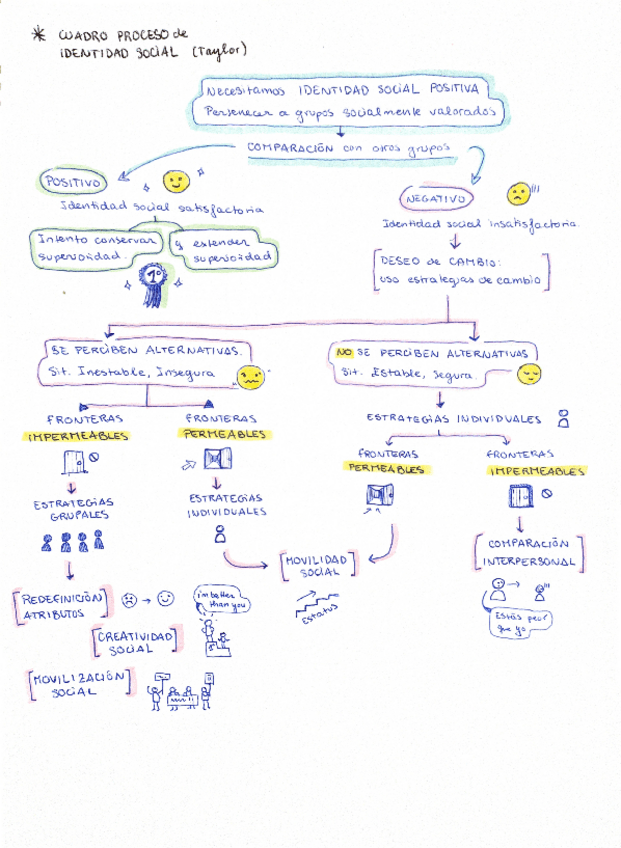 * CUADRO PROCESO de
IDENTIDAD SOCIAL (Taylor)
Necesitamos IDENTIDAD SOCIAL POSITIVA
Pertenecer a grupos socialmente valorados
COMPARACIÓN con otros grupos
POSITIVO
Identidad social satisfactoria
Intento conservar
superioridad.
y extender
superioridad
1º
NEGATIVO
Identidad social insatisfactoria.
DESEO de CAMBIO:
uso estrategias de cambio
SE PERCIBEN ALTERNATIVAS.
Sit. Inestable, Insegura
NO SE PERCIBEN ALTERNATIVAS
Sit. Estable, Segura.
FRONTERAS
IMPERMEABLES
FRONTERAS
PERMEABLES
ESTRATEGIAS INDIVIDUALES
FRONTERAS
PERMEABLES
FRONTERAS
IMPERMEABLES
ESTRATEGIAS
GRUPALES
ESTRATEGIAS
INDIVIDUALES
MOVILIDAD
SOCIAL
Estatus
COMPARACIÓN
INTERPERSONAL
Estás peor
que yo
REDEFINICIÓN
ATRIBUTOS
i'm better
than you
CREATIVIDAD
SOCIAL
MOVILIZACIÓN
SOCIAL